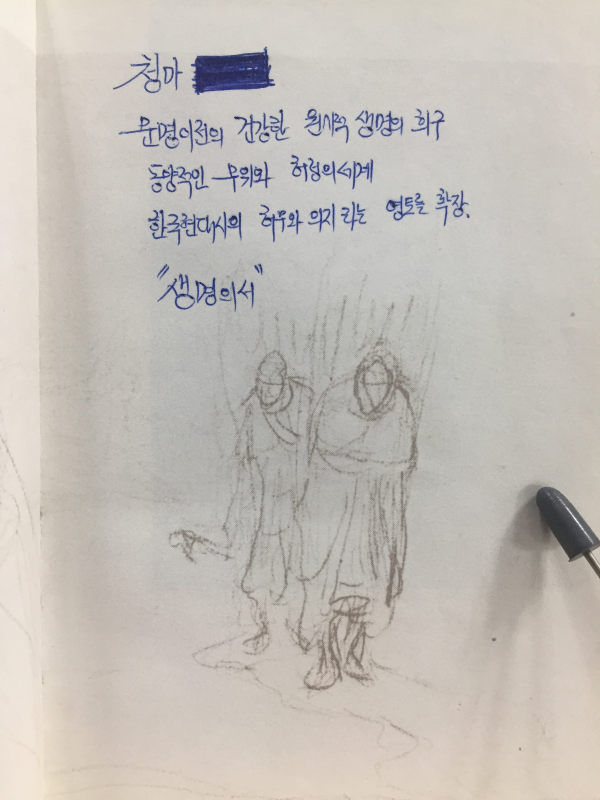 청마
문명이전의 건강한 원시적 생명의 희구
동양적인 무위와 허정의세계
한국현대시의 허무와 의지라는 영토를 확장.
"생명의서"